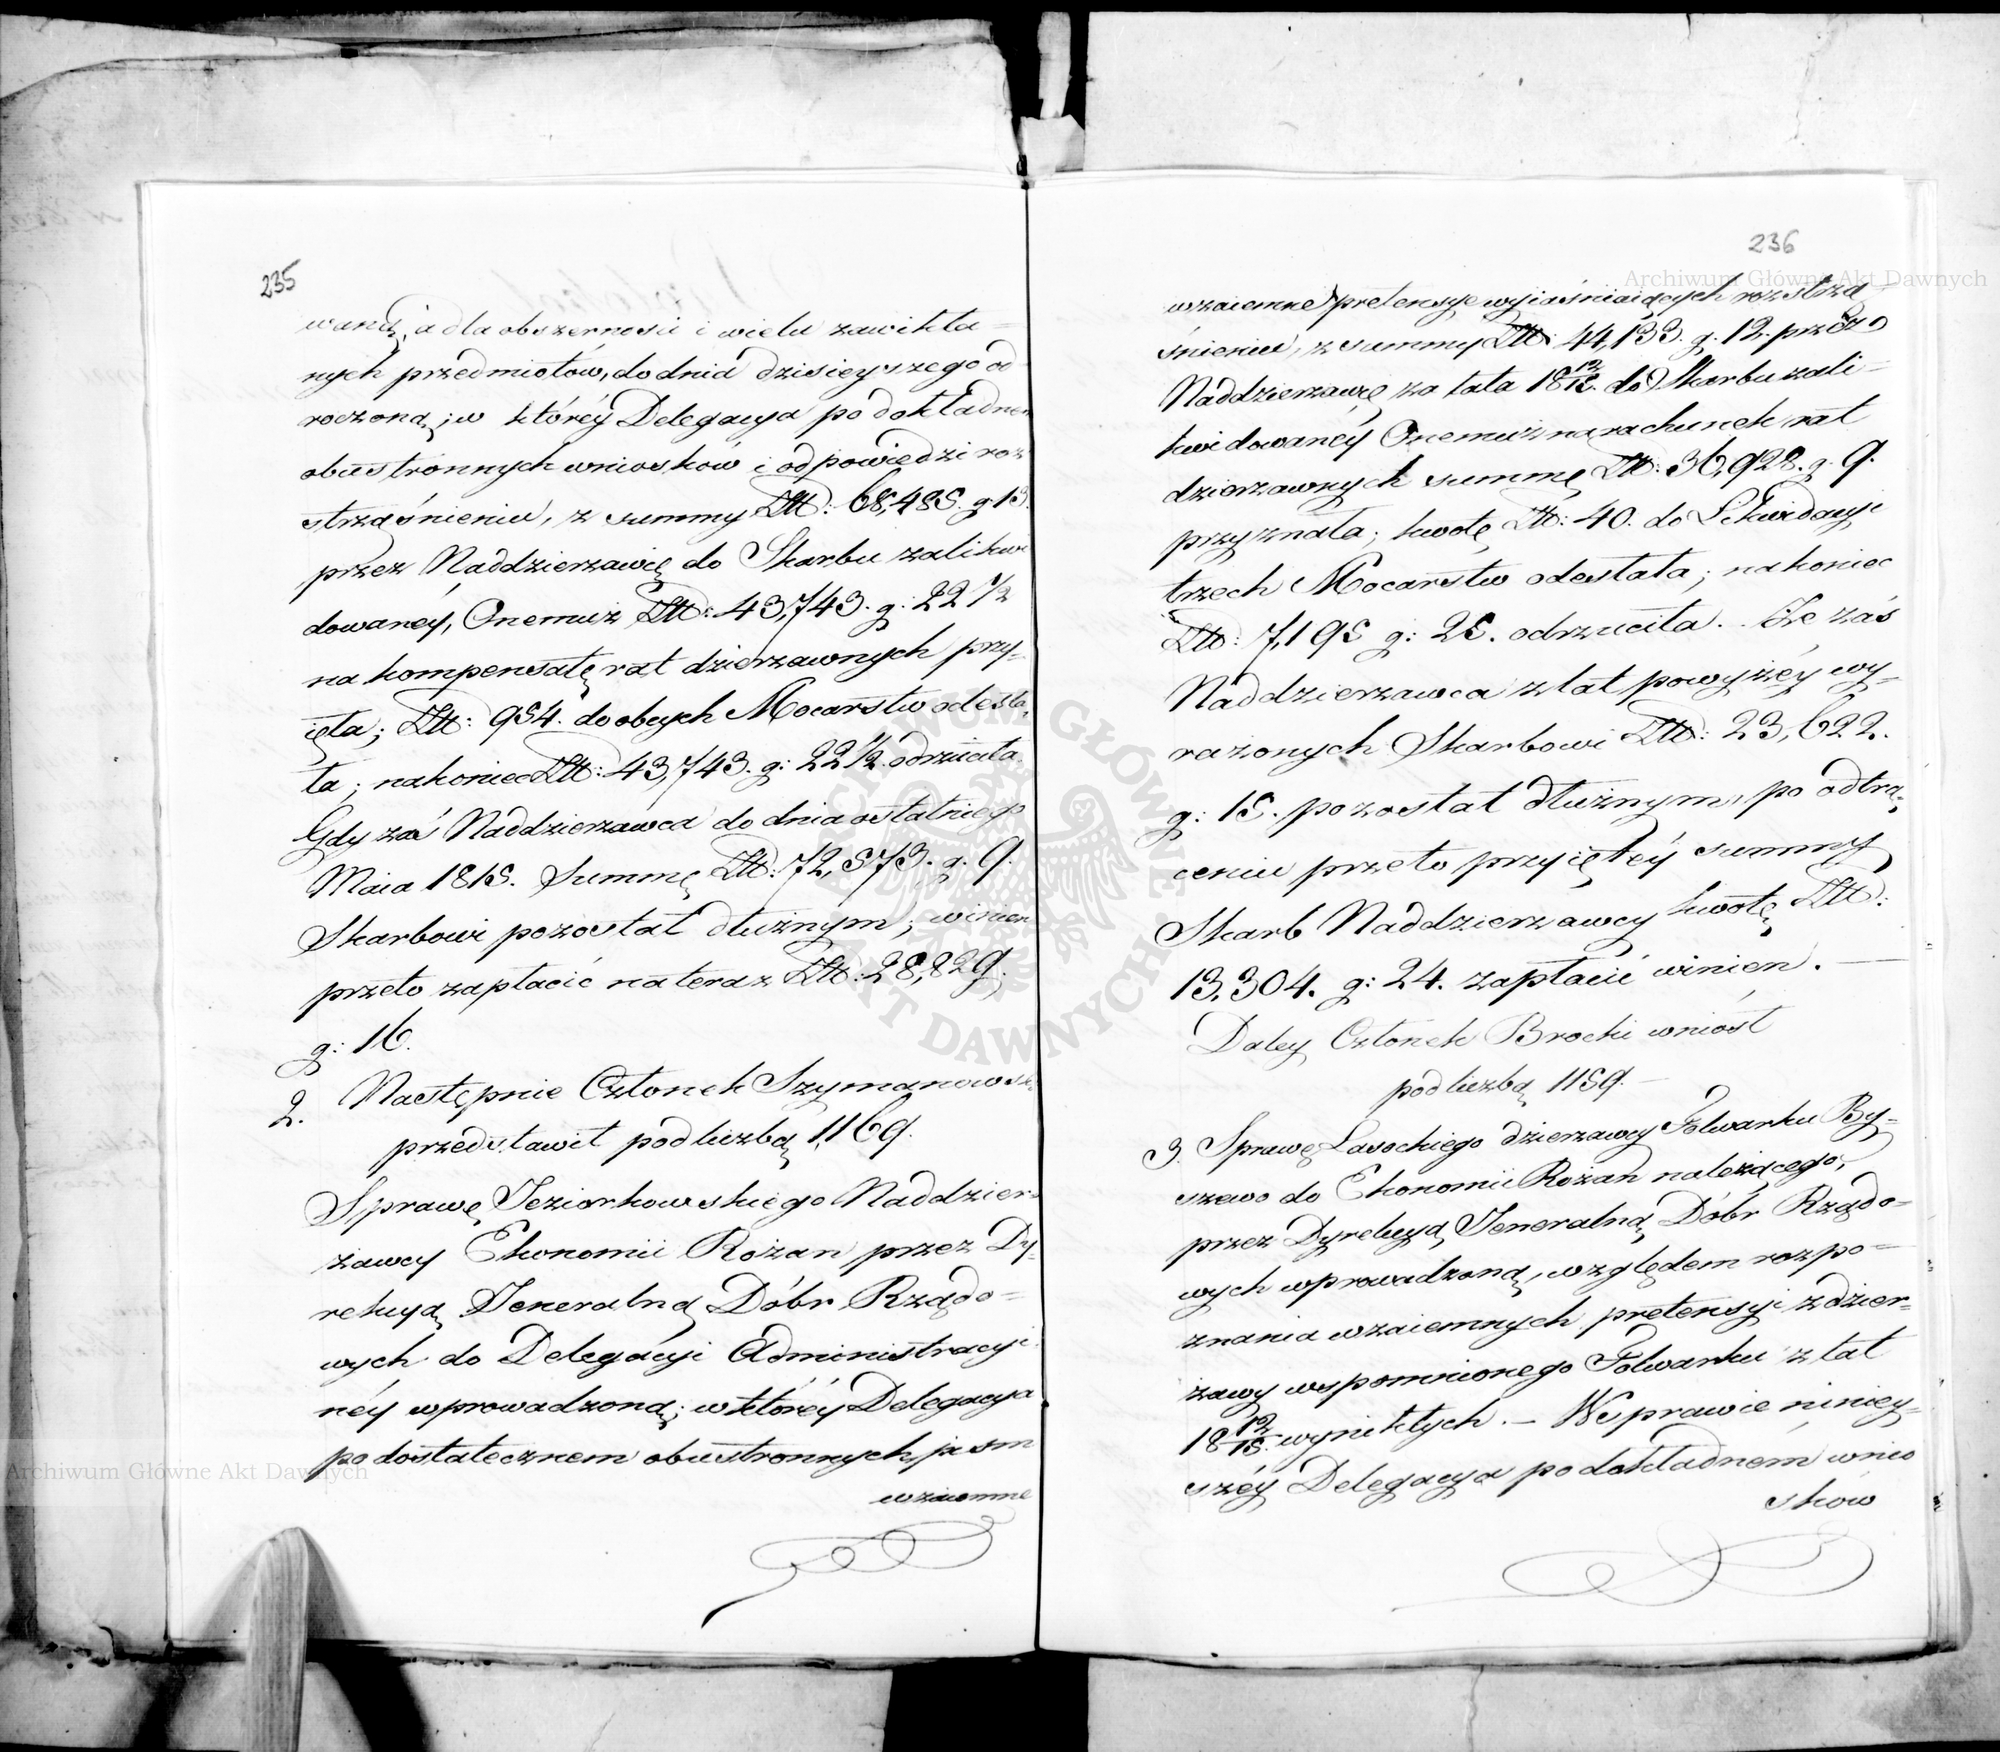 235
waną, a dla obszerności i wielu zawikła=
nych przedmiotów, do dnia dzisieyszego od
roczoną; w któréy Delegacya po dokładnem
obustronnych wniosków i odpowiedzi roz
strząśnieniu, z summy Złł: 68,485. g. 13.
przez Naddzierzawcę do Skarbu zalikwi
dowanéy, Onemuż Złł: 43,743. g: 22 1/2
na kompensatę rat dzierzawnych przy=
ięła; Złł: 954. do obcych Mocarstw odesła,
ła; nakoniec Złł: 43,743. g: 22 1/2. odrzuciła.
Gdy zaś Naddzierzawca do dnia ostatniego
Maia 1815. Summę Złł: 72,573. g. 9.
Skarbowi pozostał dłużnym; winien
przeto zapłacić na teraz Złł: 28,829.
g: 16.
2. Następnie Członek Szymanowski
przedstawił pod liczbą 1169.
Sprawę Jeziorkowskiego Naddzier=
żawcy Ekonomii Rożan przez Dy=
rekcyą Jeneralną Dóbr Rządo=
wych do Delegacyi Administracyi
néy wprowadzoną; w któréy Delegacya
po dostatecznem obustronnych pism
wzaiemne
236
wzaiemne pretensye wyiaśniaiących rozstrzą
śnieniu, z summy Złł: 44,133. g. 12. przez
Naddzierzawcę za lata 18 12/15. do Skarbu zali=
kwidowanéy Onemuż na rachunek rat
dzierzawnych summę Złł: 36,928. g. 9.
przyznała; kwotę Złł: 40. do Likwidacyi
trzech Mocarstw odesłała; nakoniec
Złł: 7,195 g: 25. odrzuciła. Że zaś
Naddzierzawca z lat powyżéy wy=
rażonych Skarbowi Złł: 23,622.
g: 15. pozostał dłużnym, po odtrą=
ceniu przeto przyiętéy summy
Skarb Naddzierzawcy kwotę Złł:
13,304. g: 24. zapłacić winien.
Daley Członek Brocki wniósł
pod liczbą 1159.
3. Sprawę Lasockiego dzierzawcy Folwarku By=
szewo do Ekonomii Rożan należącego,
przez Dyrekcyą Jeneralną Dóbr Rządo=
wych wprowadzoną, względem rozpo=
znania wzaiemnych pretensyi z dzier=
żawy wspomnionego Folwarku z lat
18 12/15. wynikłych. — W sprawie niniey=
széy Delegacya po dokładném wnio
sków
Archiwum Główne Akt Dawnych
Archiwum Główne Akt Dawnych
ARCHIWUM GŁÓWNE AKT DAWNYCH